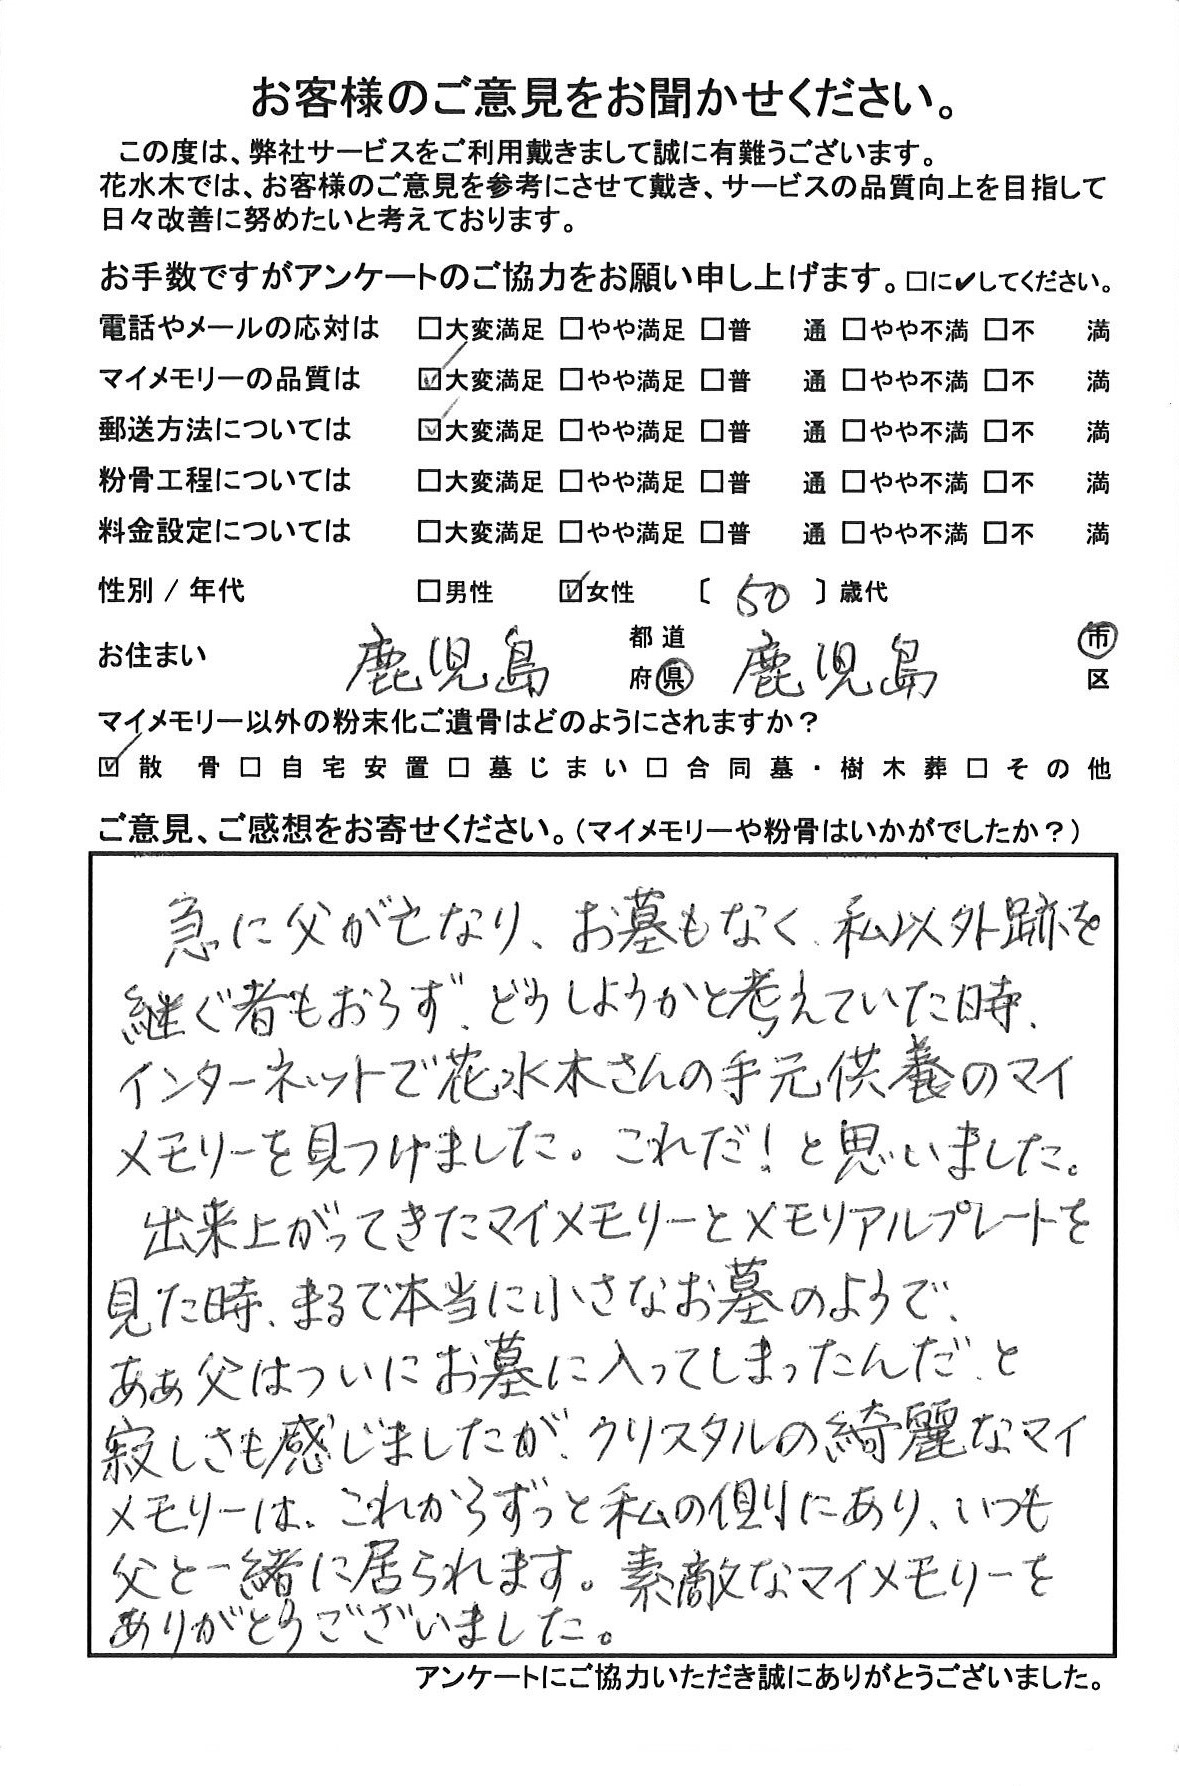 お客様のご意見をお聞かせください。
この度は、弊社サービスをご利用戴きまして誠に有難うございます。
花水木では、お客様のご意見を参考にさせて戴き、サービスの品質向上を目指して
日々改善に努めたいと考えております。
お手数ですがアンケートのご協力をお願い申し上げます。□に✔してください。
電話やメールの応対は □大変満足 □やや満足 □普 通 □やや不満 □不 満
マイメモリーの品質は ☑大変満足 □やや満足 □普 通 □やや不満 □不 満
郵送方法については ☑大変満足 □やや満足 □普 通 □やや不満 □不 満
粉骨工程については □大変満足 □やや満足 □普 通 □やや不満 □不 満
料金設定については □大変満足 □やや満足 □普 通 □やや不満 □不 満
性別 / 年代 □男性 ☑女性 〔 50 〕歳代
お住まい 鹿児島 都道府県 鹿児島 市区
マイメモリー以外の粉末化ご遺骨はどのようにされますか？
☑散 骨 □自宅安置 □墓じまい □合同墓・樹木葬 □その他
ご意見、ご感想をお寄せください。（マイメモリーや粉骨はいかがでしたか？）
急に父が亡なり、お墓もなく、私以外跡を
継ぐ者もおらず、どうしようかと考えていた時、
インターネットで花水木さんの手元供養のマイ
メモリーを見つけました。これだ！と思いました。
出来上がってきたマイメモリーとメモリアルプレートを
見た時、まるで本当に小さなお墓のようで、
あぁ父はついにお墓に入ってしまったんだ、と
寂しさも感じましたが、クリスタルの綺麗なマイ
メモリーは、これからずっと私の側にあり、いつも
父と一緒に居られます。素敵なマイメモリーを
ありがとうございました。
アンケートにご協力いただき誠にありがとうございました。